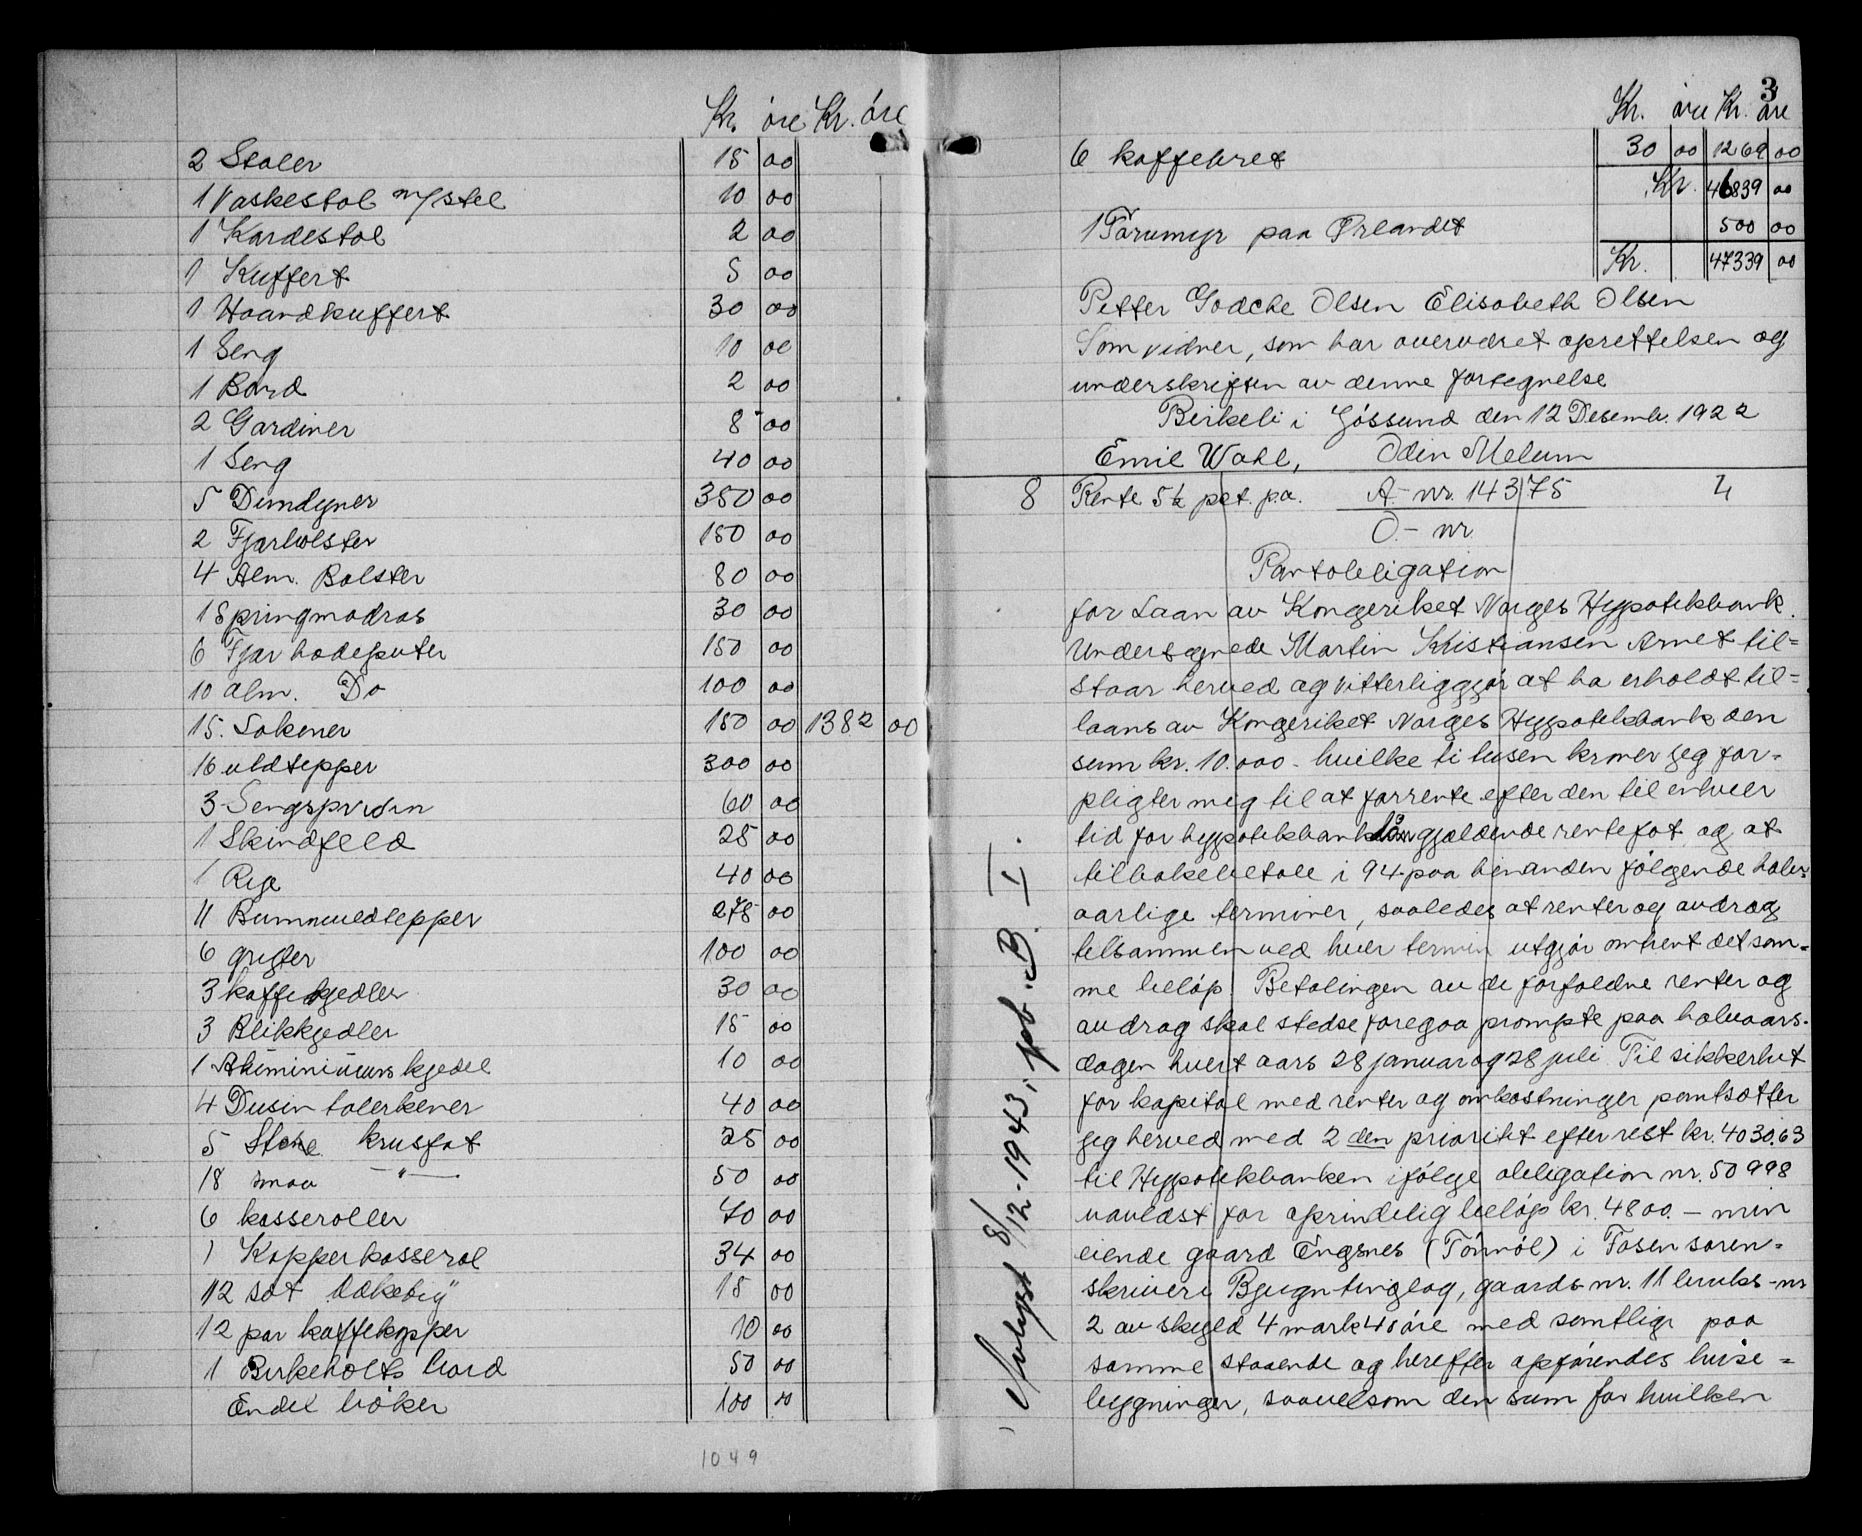 Kr. öre Kr. öre
2 Stoler 15 00
1 Vaskestol m/stel 10 00
1 Kardestol 2 00
1 Kuffert 5 00
1 Haandkuffert 30 00
1 Seng 10 00
1 Bord 2 00
2 Gardiner 8 00
1 Seng 40 00
5 Dundyner 350 00
2 Fjærbolster 150 00
4 Alm. Bolster 80 00
1 Springmadras 30 00
6 Fjær hodeputer 150 00
10 alm. Do 100 00
15. Lakener 150 00 1382 00
16 uldtepper 300 00
3 Sengspredn 60 00
1 Skindfeld 25 00
1 Rye 40 00
11 Bummuldtepper 275 00
6 gryter 100 00
3 kaffekjedler 30 00
3 Blikkjedler 15 00
1 Aluminiums kjedel 10 00
4 Dusin talerkener 40 00
5 Store krusfat 25 00
18 smaa —"— 50 00
6 kasseroller 70 00
1 Kopperkasserol 34 00
12 sat 15 00
12 par kaffekopper 10 00
1 Birkeholts bord 50 00
Endel böker 100 00
1049
3
Kr. öre Kr. öre
6 kaffebret 30 00 1269 00
Kr. 46839 00
1 Torvmyr paa Ørlandet 500 00
Kr. 47339 00
Petter Godche Olsen Elisabeth Olsen
Som vidner, som har overværet oprettelsen og
underskriften av denne fortegnelse
Birkeli i Jössund den 12 Desemb. 1922
Emil Wahl, Odin Melum
8 Rente 5½ pct. p.a. A.- nr. 14375 4
O.- nr.
Pantobligation
for Laan av Kongeriket Norges Hypotekbank.
Undertegnede Martin Kristiansen Arnet til=
staar herved og vitterliggjör at ha erholdt til=
laans av Kongeriket Norges Hypotekbank den
sum kr. 10.000 - hvilke ti tusen kroner jeg for-
pligter mig til at forrente efter den til enhver
tid for hypotekbanklån gjældende rentefot og at
tilbakebetale i 94 paa hinanden fölgende halv-
aarlige terminer, saaledes at renter og avdrag
tilsammen ved hver termin utgjör omtrent det sam=
me belöp. Betalingen av de forfaldne renter og
avdrag skal stedse foregaa prompte paa halvaars-
dagen hvert aars 28 januar og 28 juli. Til sikkerhet
for kapital med renter og omkostninger pantsætter
jeg herved med 2 den prioritet efter rest kr. 4030.63
til Hypotekbanken ifölge obligation nr. 50998
utvstedt for oprindelig belöp kr. 4800. - min
eiende gaard Engsnes (Tönnöl) i Fosen soren=
skriveri Bjugn tinglag, gaards nr. 11 bruks-nr
2 av skyld 4 mark 40 öre med samtlige paa
samme staaende og herefter opförendes huse=
bygninger, saavelsom den sum for hvilken
Avlyst 8/12-1943, jfr. B. I.